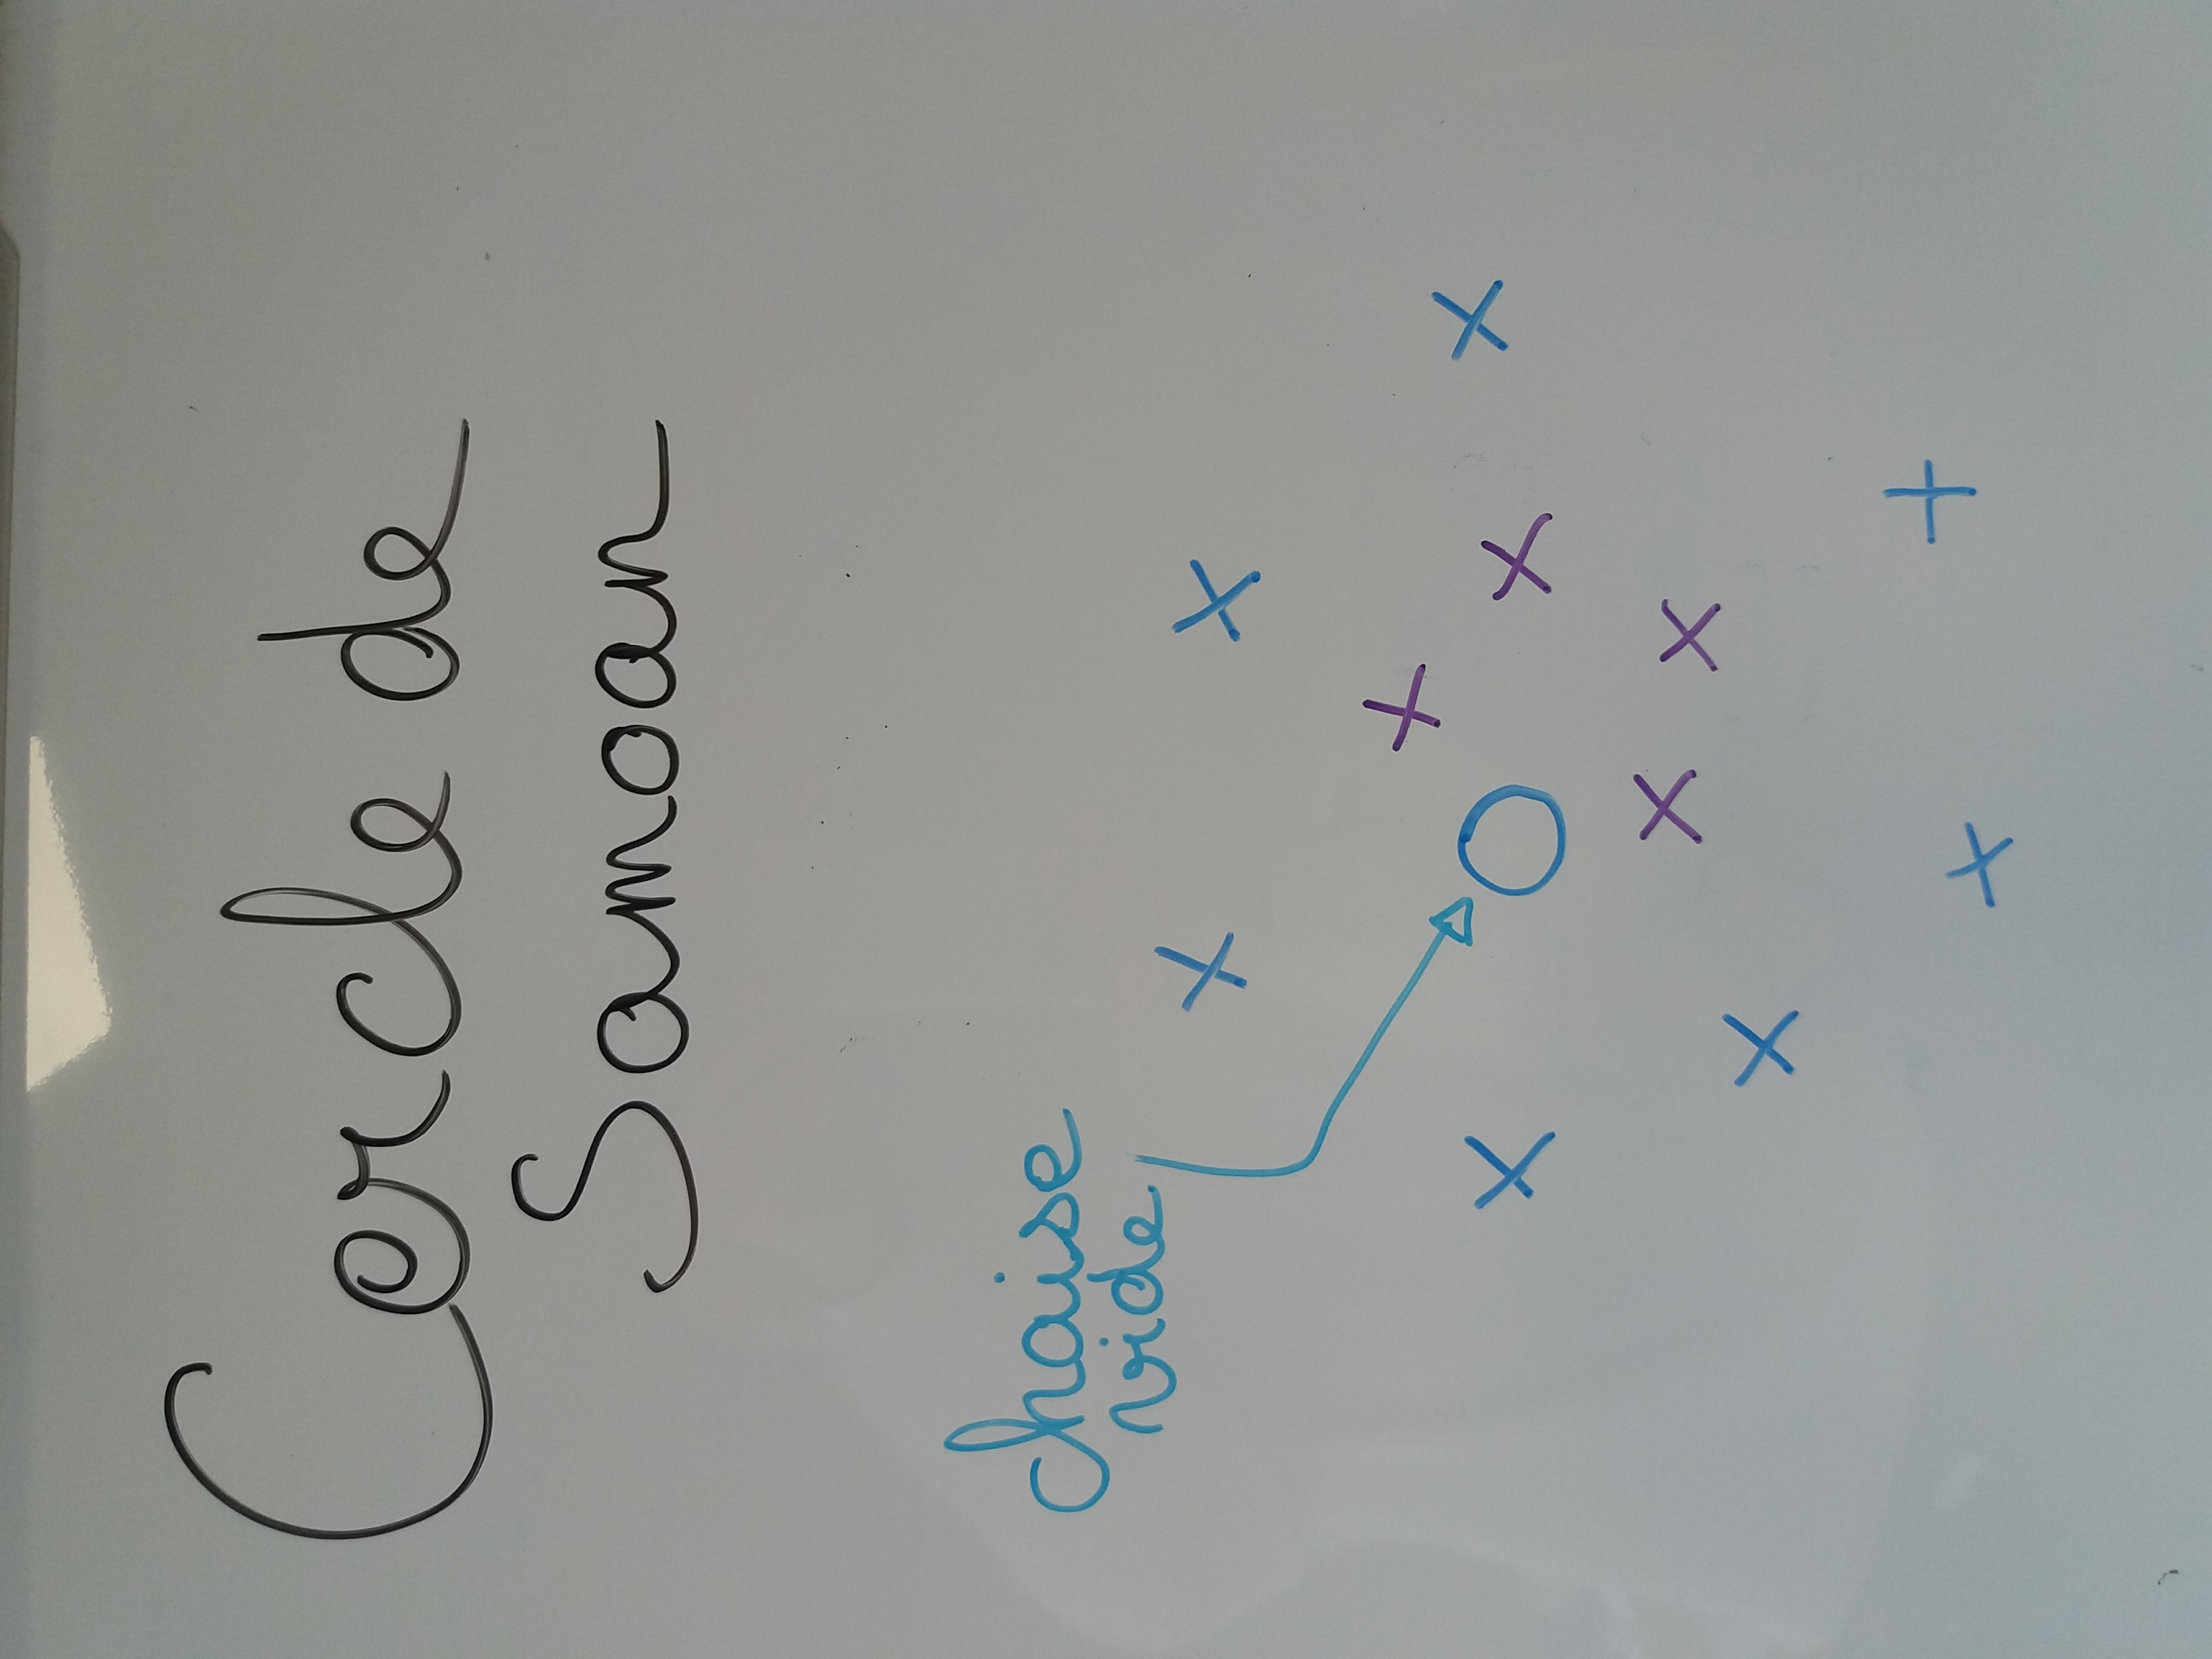 Cercle de
Samoan
Chaise
vide